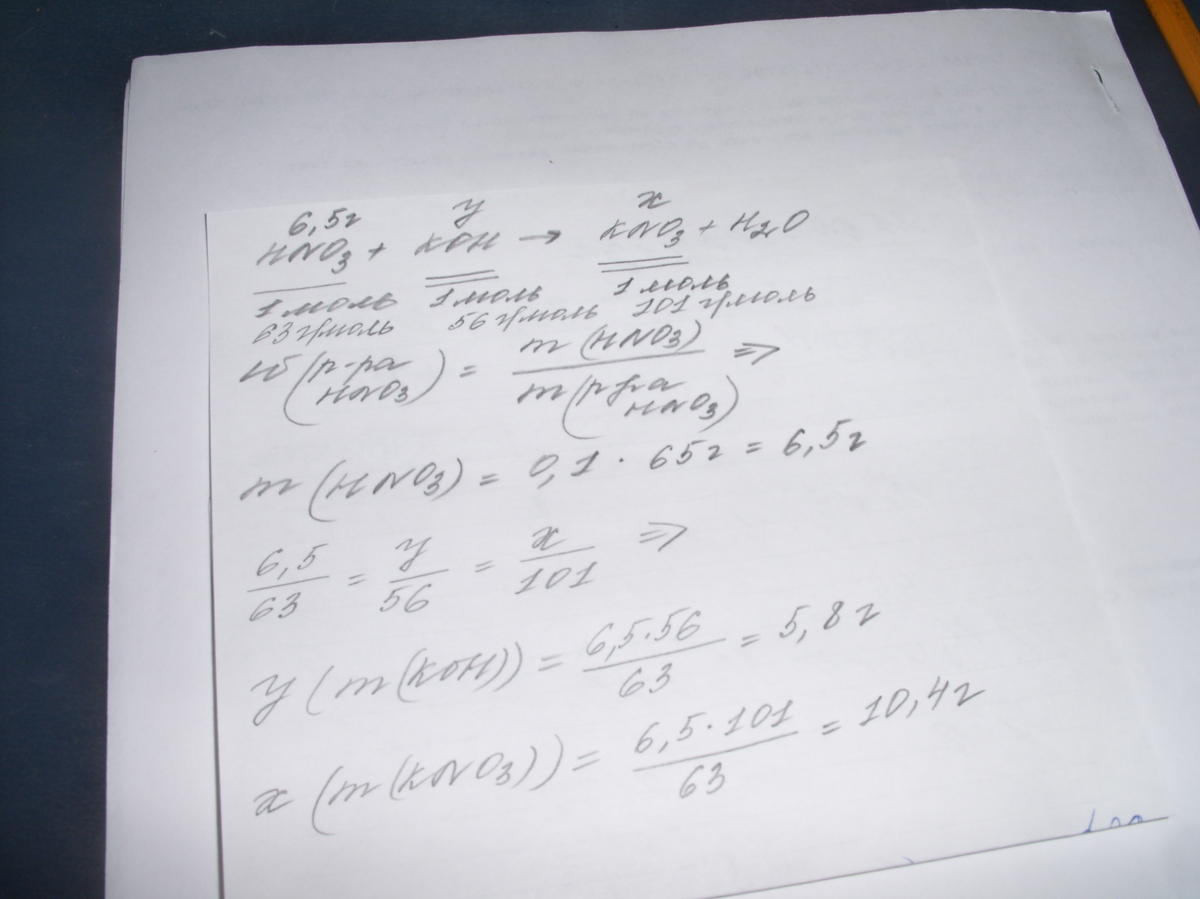 6,5г y x
HNO3 + KOH → KNO3 + H2O
1 моль 1 моль 1 моль
63 г/моль 56 г/моль 101 г/моль
w(р-ра HNO3) = m(HNO3) / m(р-ра HNO3) ⇒
m(HNO3) = 0,1 · 65г = 6,5г
6,5/63 = y/56 = x/101 ⇒
y(m(KOH)) = 6,5·56/63 = 5,8г
x(m(KNO3)) = 6,5·101/63 = 10,4г